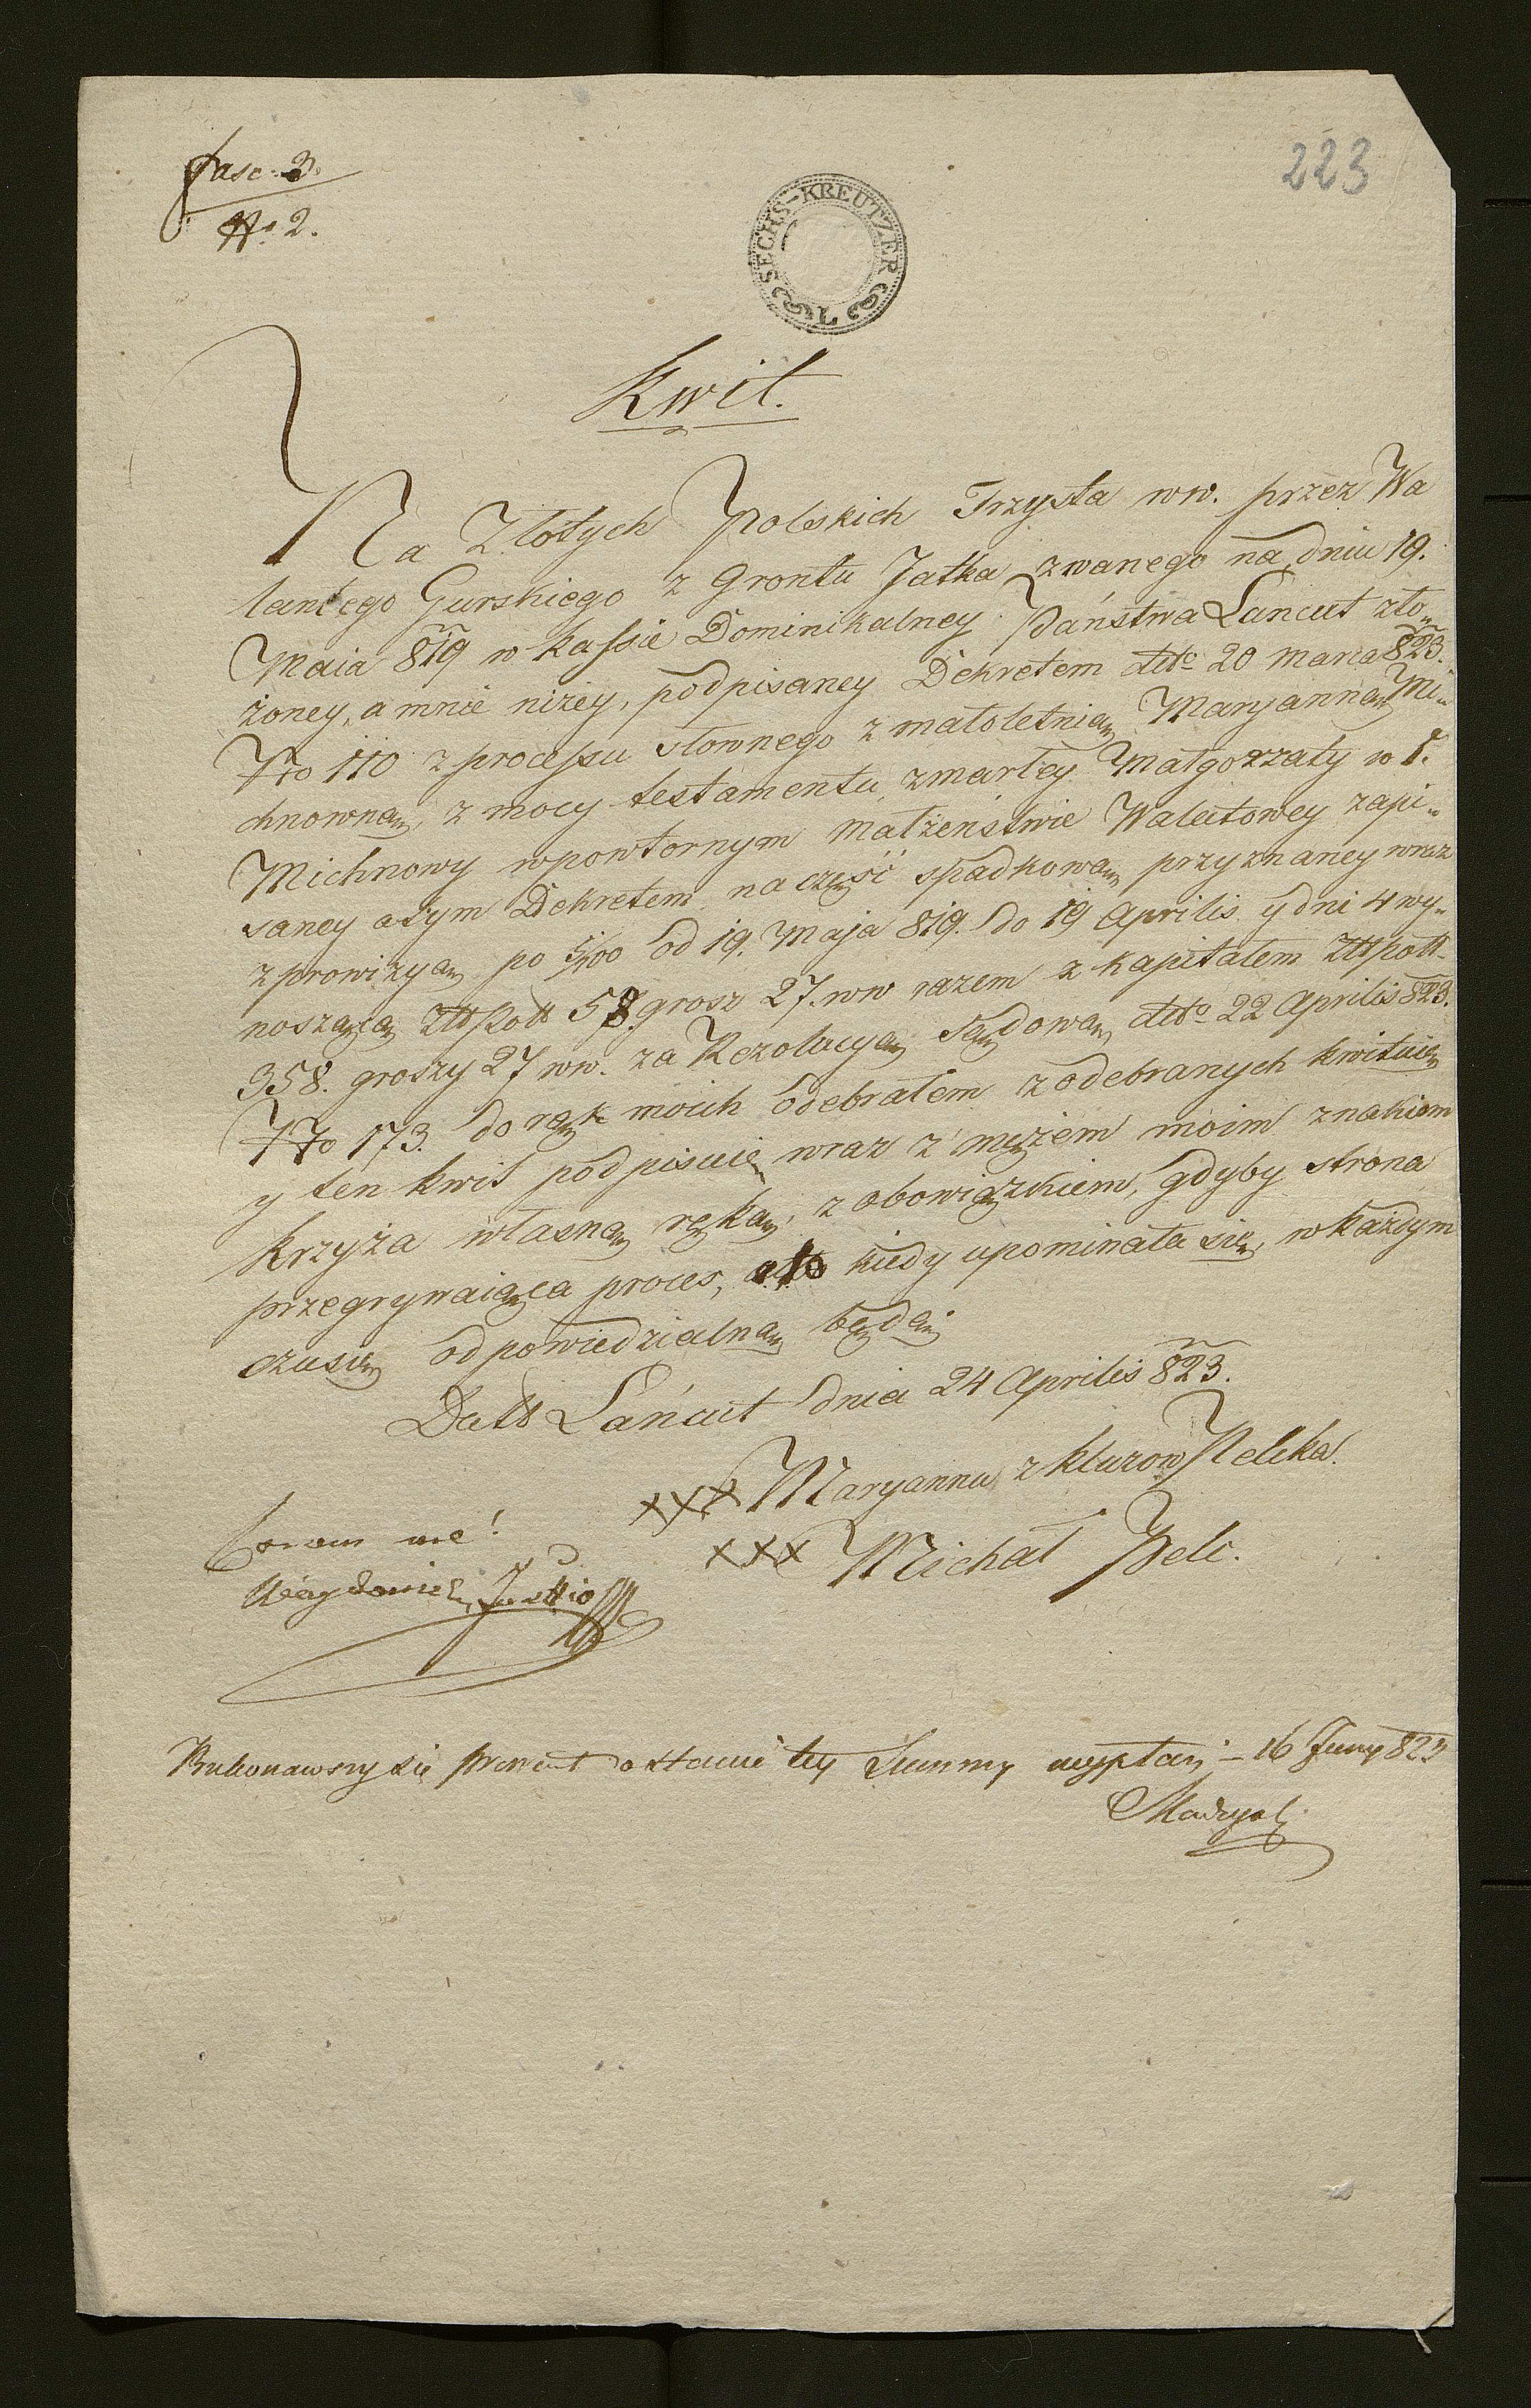 fasc. 3.
No. 2.
223
SECHS-KREUTZER
L
Kwit.
Na Złotych Polskich Trzysta ww. przez Wa
lantego Gurskiego z Grontu Jatka zwanego na dniu 19.
Maia 819 w kassie Dominikalney Państwa Łancut zło„
żoney, a mnie niżey, podpisaney Dekretem dtto 20 marca 823.
Nro 110 z processu słownego z małoletnią Maryanną Mi„
chnowną, z mocy testamentu zmarłey Małgorzaty w 1.
Michnowy wpowtornym małżeństwie Walutowey zapi„
saney a tym Dekretem na część spadkową przyznaney wraz
z prowizyą po 5/100 od 19. Maja 819. do 19 Aprilis y dni 4 wy„
noszącą Złt Poll 58 grosz 27. ww razem z kapitałem Złt poll
358. groszy 27 ww. za Rezolucyą Sądową dtto 22 Aprilis 823.
Nro 173. do ręk moich odebrałem z odebranych kwituię
y ten kwit podpisuię wraz z mężem moim znakiem
krzyża własną ręką, z obowiązkiem, gdyby strona
przegrywaiąca proces, kiedy upominała się, w każdym
czasię odpowiedzialną będę
Datt Łańcut dnia 24 Aprilis 823.
xxx Maryanna z Kluzow Pelcka.
xxx Michał Pelc.
Coram me!
Justtio
się tey Summy 16 Juny 823